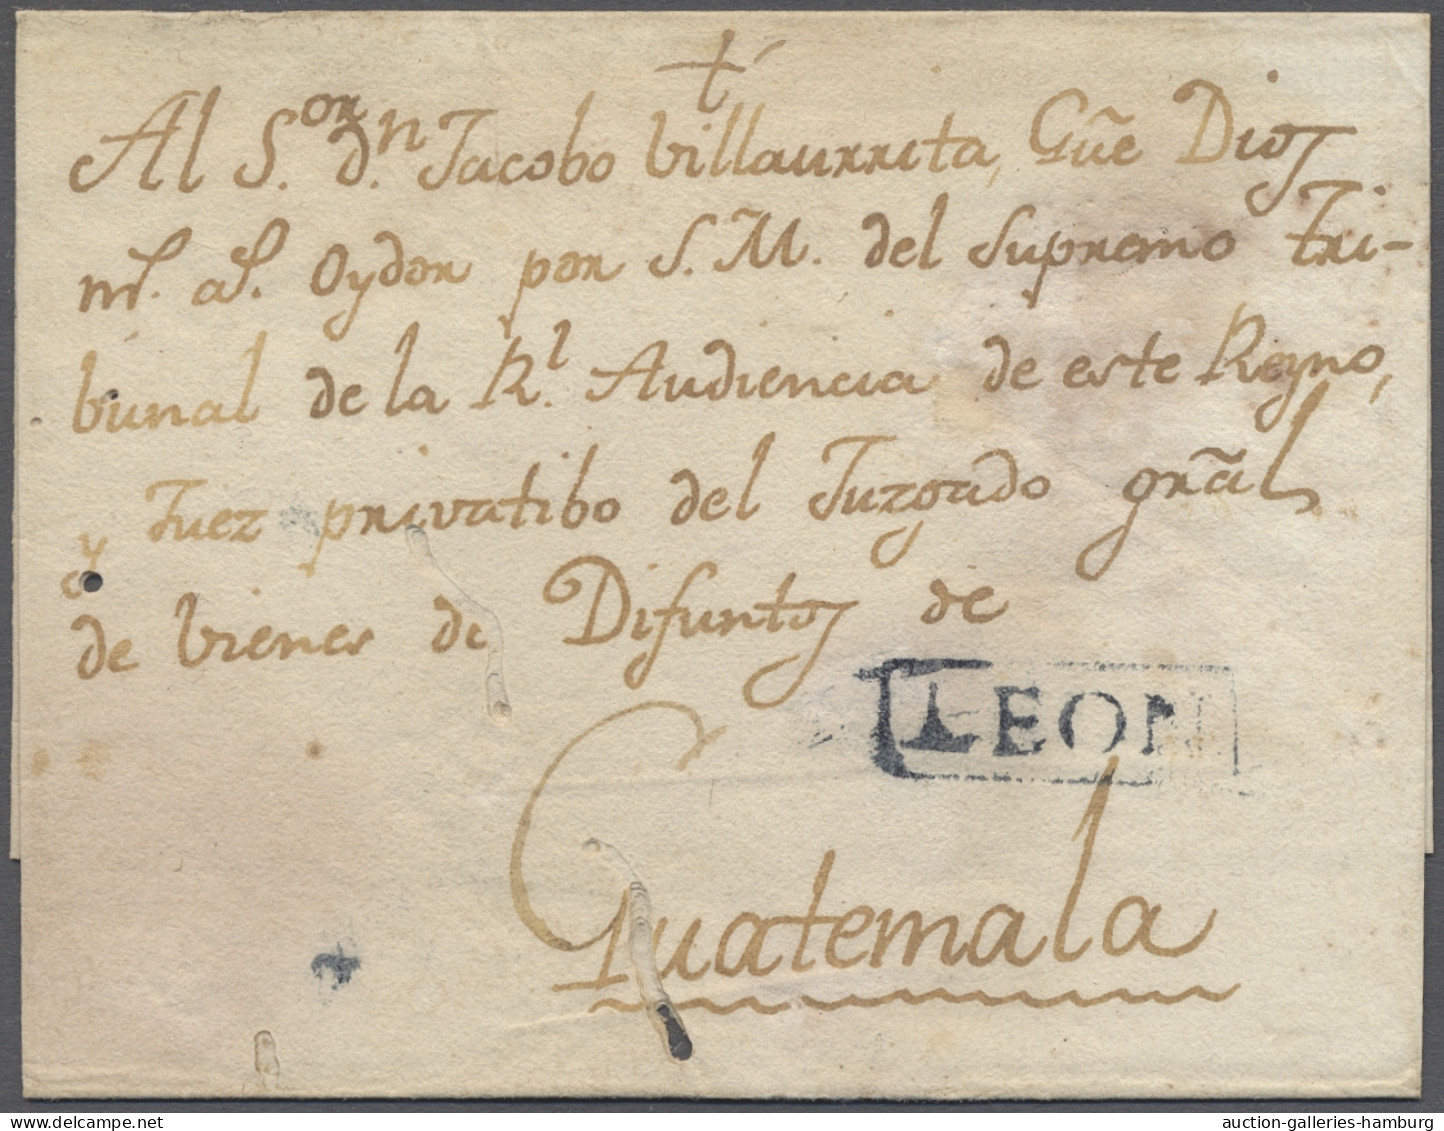 †
Al S.or d.n Jacobo Villaurrita, Gũe Dios
m.s a.s Oydor por S. M. del Supremo Tri-
bunal de la R.l Audiencia de este Reyno,
y Juez privatibo del Juzgado grãl
de bienes de Difuntos de
LEON
Guatemala
auction-galleries-hamburg